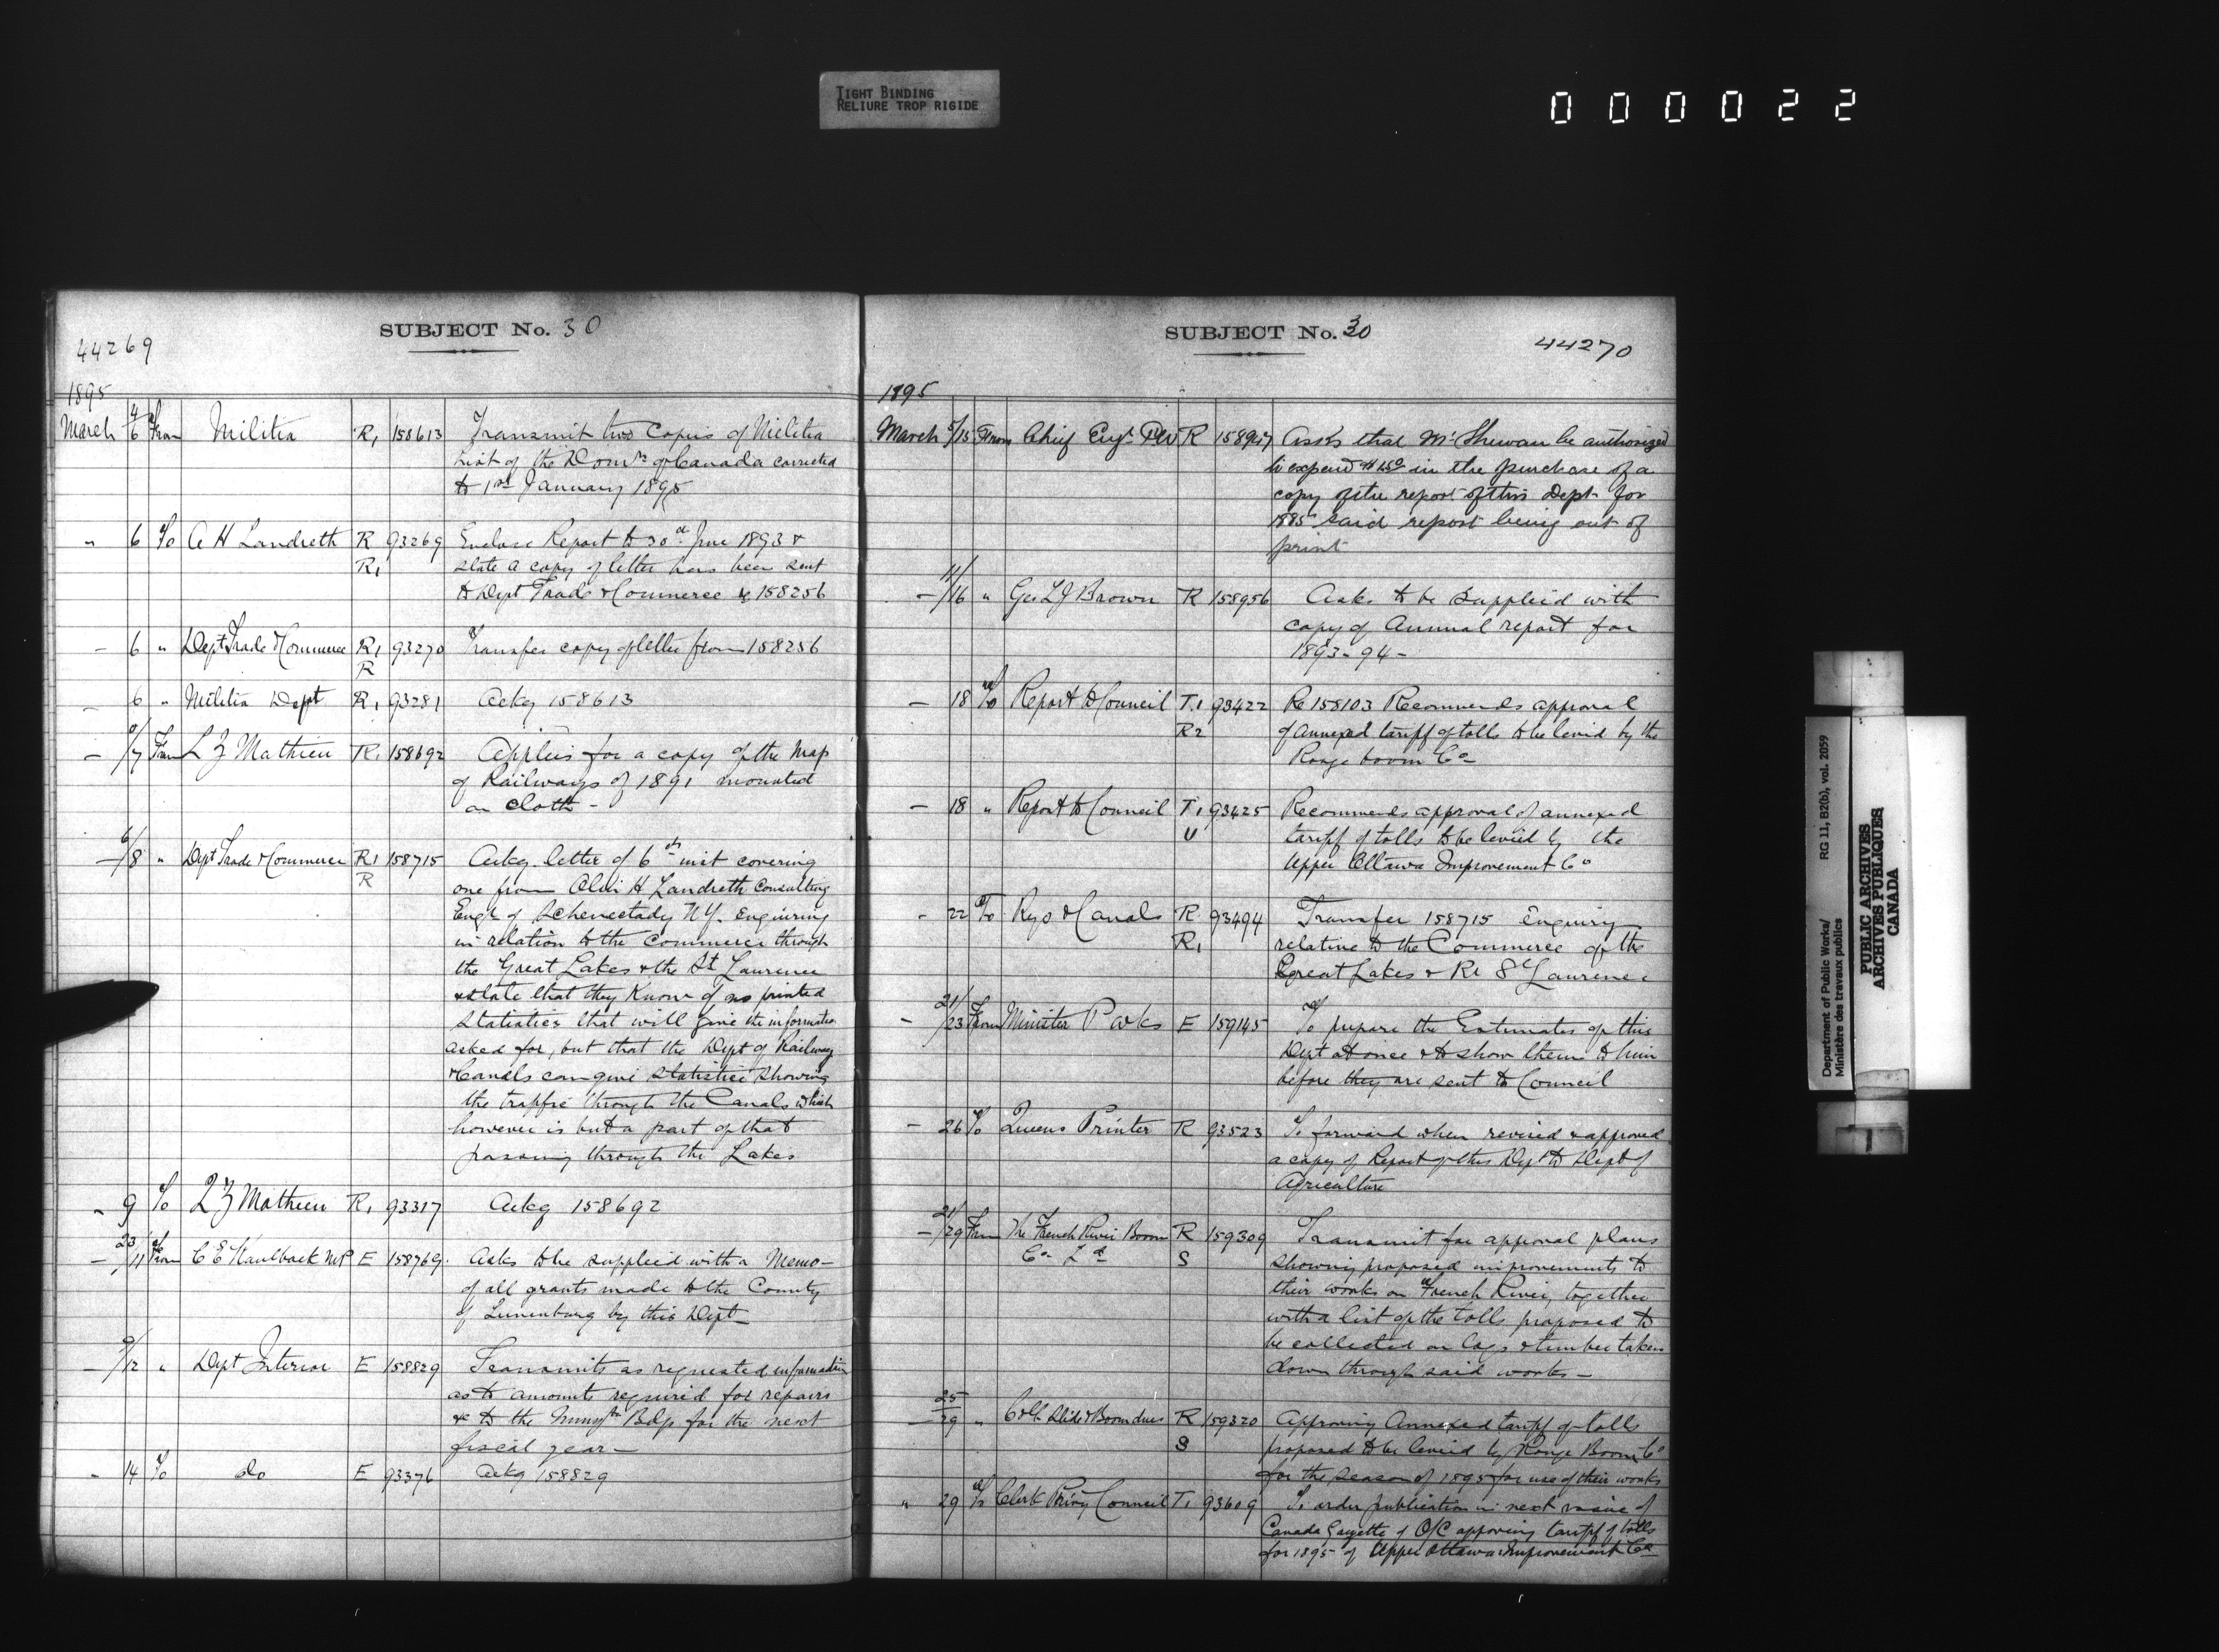 TIGHT BINDING
RELIURE TROP RIGIDE
000022
SUBJECT No. 30
44269
1895
March 4/6 From Militia R1 158613 Transmit two copies of Militia
List of the Domn of Canada corrected
to 1st January 1895
" 6 To A H Landreth R 93269 Enclose Report to 30th June 1893 &
R1 state a copy of letter has been sent
to Dept Trade & Commerce 158256
- 6 " Dept Trade & Commerce R1 93270 Transfer copy of letter from 158256
R
- 6 " Militia Dept R1 93281 Ackg 158613
- /7 From L Z Mathieu R1 158692 Applies for a copy of the Map
of Railways of 1891 mounted
on cloth -
- 6/8 " Dept Trade & Commerce R1 158715 Ackg. letter of 6th inst covering
R one from H Landreth Consulting
Engr of Schenectady N.Y. Enquiring
in relation to the Commerce through
the Great Lakes & the St Lawrence
& state that they know of no printed
statistics that will give the information
asked for, but that the Dept of Railway
& Canals can give statistics showing
the traffic through the Canals which
however is but a part of that
passing through the Lakes
- 9 To L Z Mathieu R1 93317 Ackg 158692
- 23/11 From C E Kaulback MP E 158769 Asks to be supplied with a Memo -
of all grants made to the County
of Lunenburg by this Dept -
- 9/12 " Dept Interior E 158829 Transmits as requested information
as to amounts required for repairs
&c to the Bdgs for the next
fiscal year -
- 14 To do E 93376 Ackg 158829
SUBJECT No. 30
44270
1895
March 5/15 From Chief Engr PW R Asks that Mr Shewan be authorized
to expend in the purchase of a
copy of the report of this Dept for
1885 said report being out of
print
- 11/16 " Geo L J Brown R 158956 Asks to be supplied with
copy of Annual report for
1893 - 94 -
- 18 To Report to Council T1 93422 Re 158103 Recommends approval
R2 of annexed tariff of tolls to be levied by the
Rouge boom Co
- 18 " Report to Council T1 93425 Recommends approval of annexed
U tariff of tolls to be levied by the
Upper Ottawa Improvement Co
- 22 To Rys & Canals R 93494 Transfer 158715 Enquiry
R1 relative to the Commerce of the
Great Lakes & Rr St Laurence
- 21/23 From Minister P Wks E 159145 To prepare the Estimates of this
Dept at once & to show them to him
before they are sent to Council
- 26 To Queens Printer R 93523 To forward when revised & approved
a copy of Report of this Dept to Dept of
Agriculture
- 21/29 From The French River Boom R 159309 Transmit for approval plans
Co Ld S showing proposed improvements to
their works on French River, together
with a list of the tolls proposed to
be collected on logs & timber taken
down through said works -
- 25/29 " Coll. Slide & Boom dues R 159320 Approving Annexed tariff of tolls
S proposed to be levied by Rouge Boom Co
for the season of 1895 for use of their works
" 29 To Clerk Privy Council T1 93609 To order publication in next issue of
Canada Gazette of O/C approving tariff of tolls
for 1895 of Upper Ottawa Improvement Co
Department of Public Works/
Ministère des travaux publics
RG 11, B2(b), vol. 2059
PUBLIC ARCHIVES
ARCHIVES PUBLIQUES
CANADA